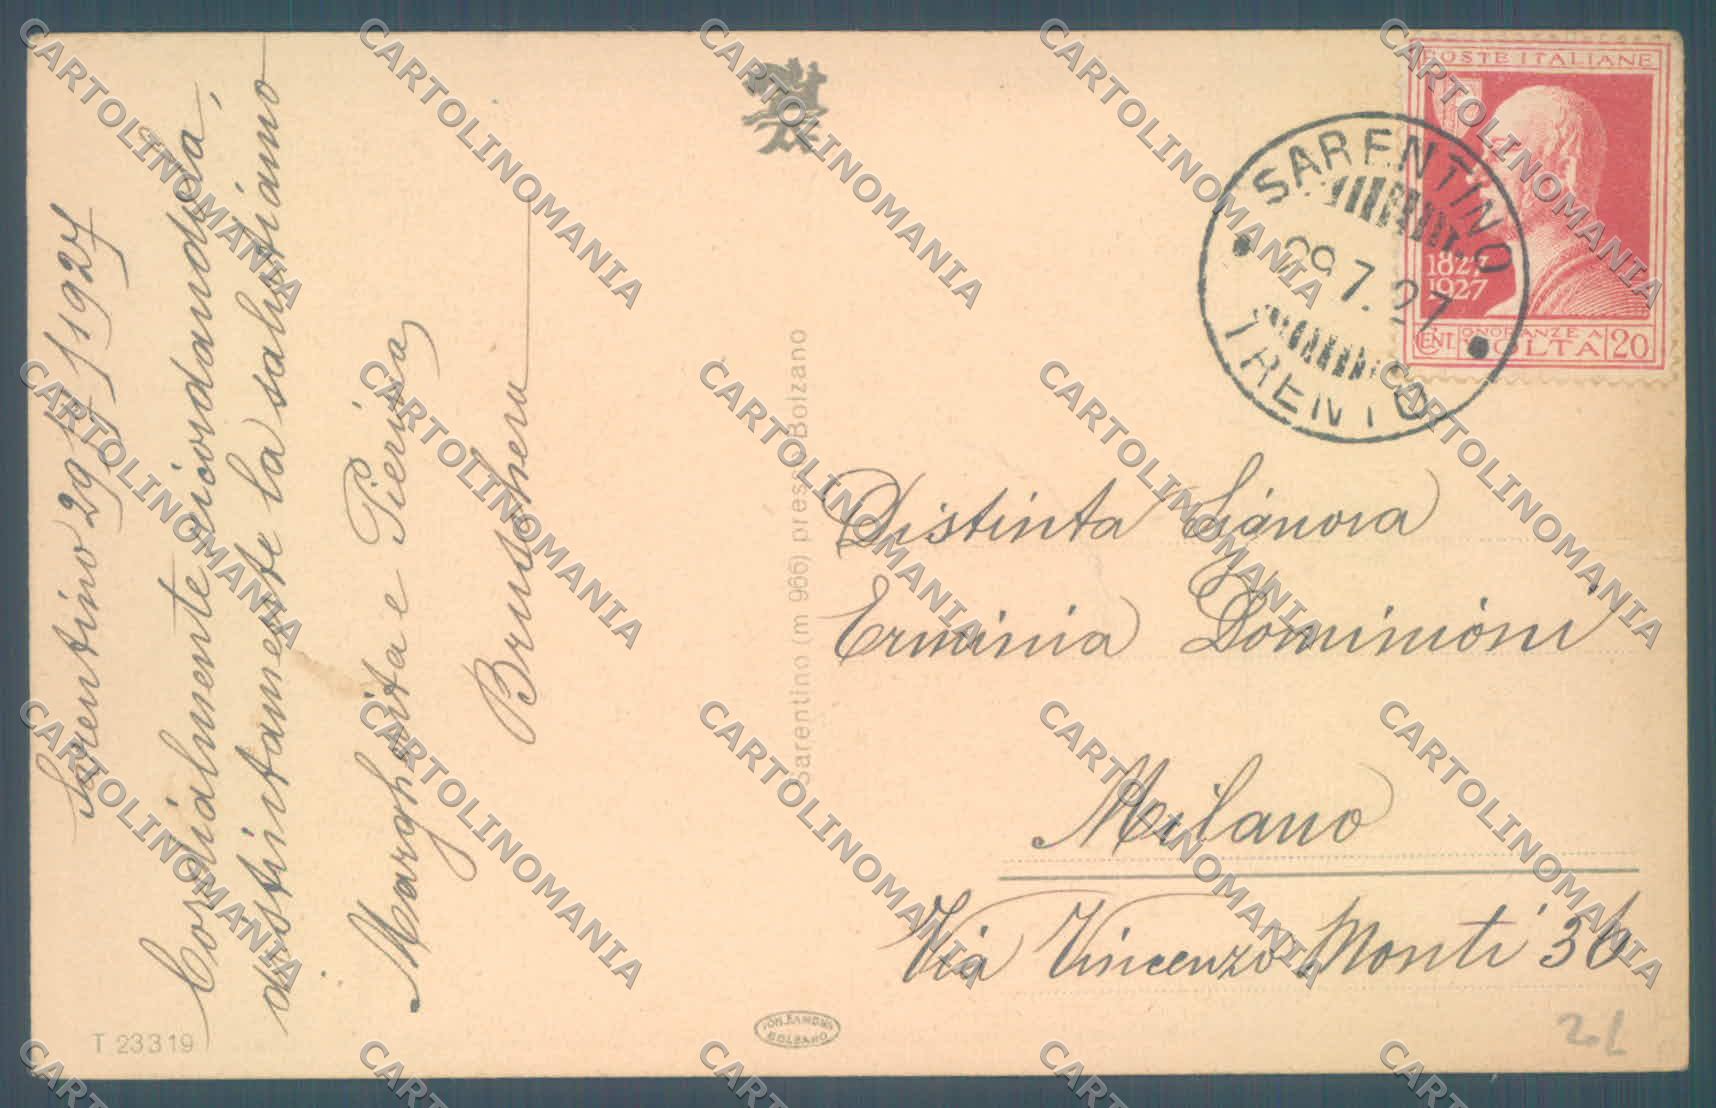 Sarentino 29/7/1927
Cordialmente ricordandola,
distintamente la salutiamo
Margherita e Pierina
POSTE ITALIANE
1827
1927
CENT. ONORANZE A VOLTA 20
SARENTINO
29.7.27
TRENTO
Sarentino (m 966) presso Bolzano
Distinta Signora
Erminia Dominioni
Milano
Via Vincenzo Monti 36
T 23319
BOLZANO
CARTOLINOMANIA